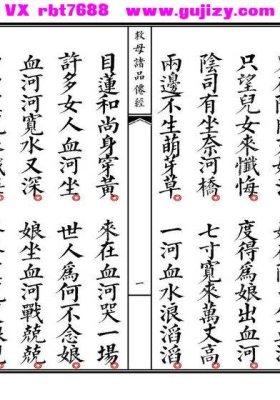 VX rbt7688
www.gujizy.com
只望兒女來懺悔 度得爲娘出血河
陰司有坐奈河橋 七寸寬來萬丈高
兩邊不生萌芽草 一河血水浪滔滔
救母諸品僊經 一
目蓮和尚身穿黃 來在血河哭一場
許多女人血河坐 世人爲何不念娘
血河河寬水又深 娘坐血河戰兢兢